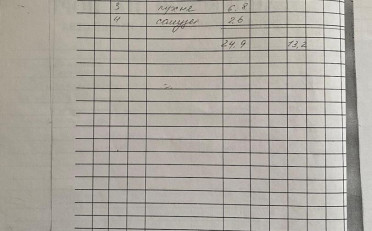 3 кухне 6.8
4 санузел 2.6
24,9 13,2